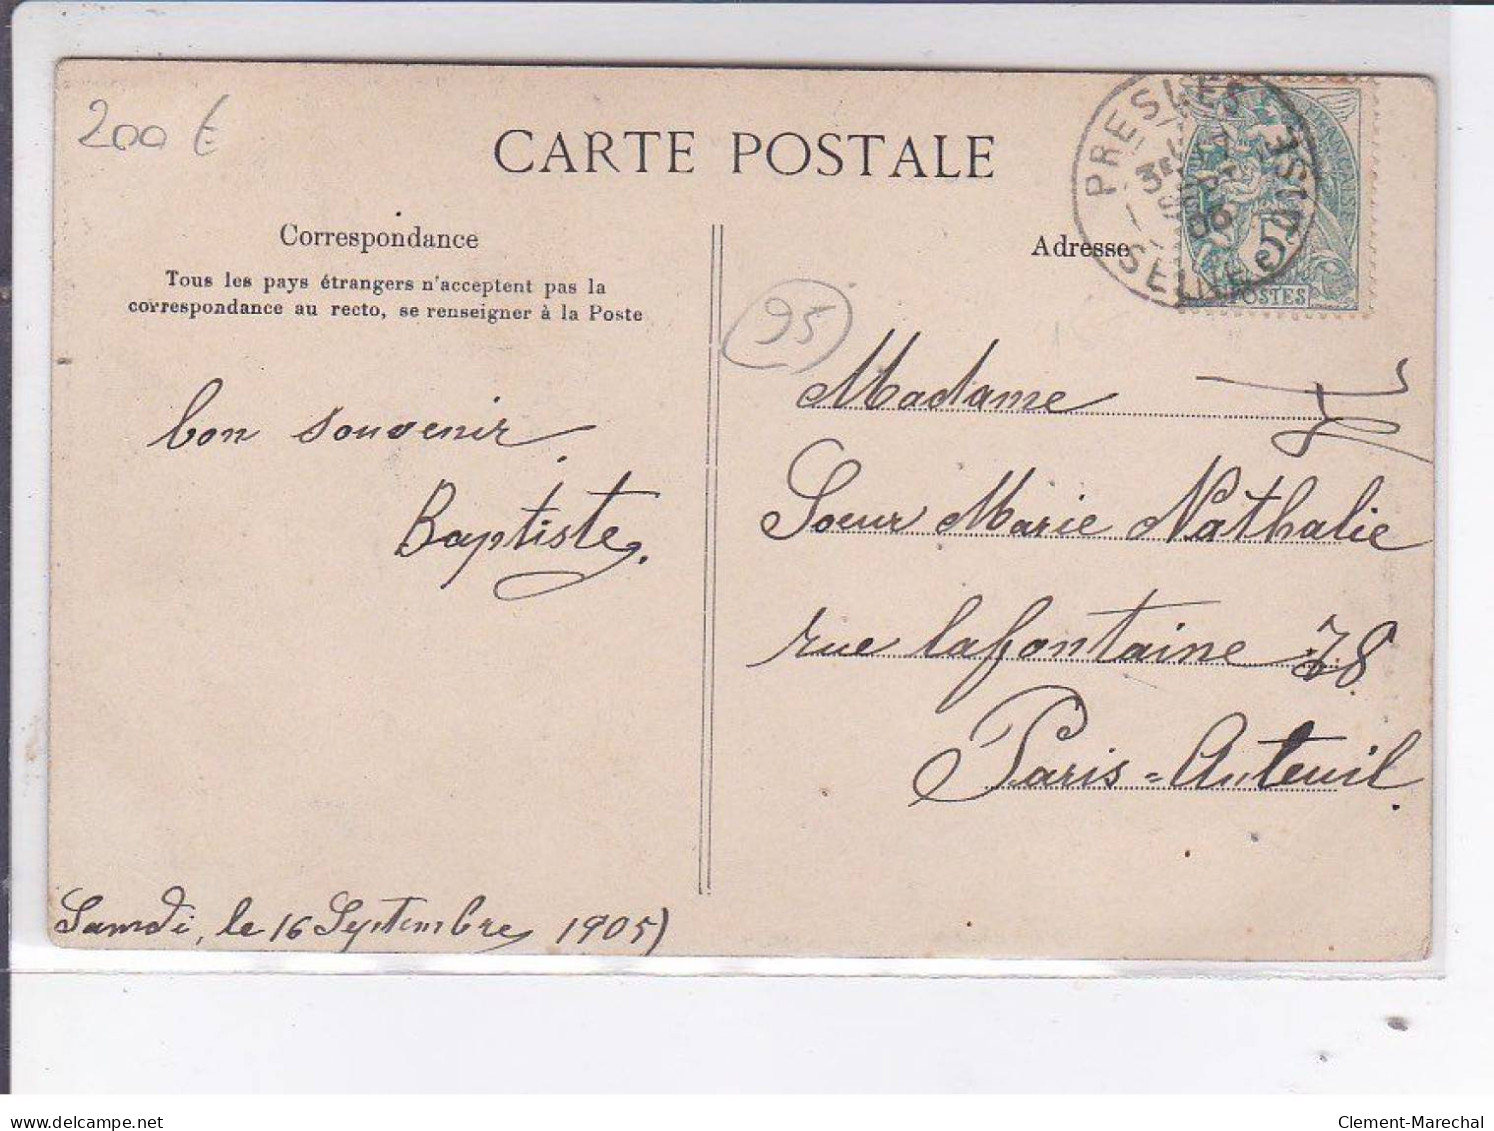 200 €
CARTE POSTALE
Correspondance
Tous les pays étrangers n'acceptent pas la
correspondance au recto, se renseigner à la Poste
bon souvenir
Baptiste.
Samdi, le 16 Septembre 1905)
PRESLES
3E
SEINE &
OISE
5
POSTES
Adresse
95
Madame
Soeur Marie Nathalie
rue lafontaine 78
Paris=Auteuil.
delcampe.net
Clement-Marechal